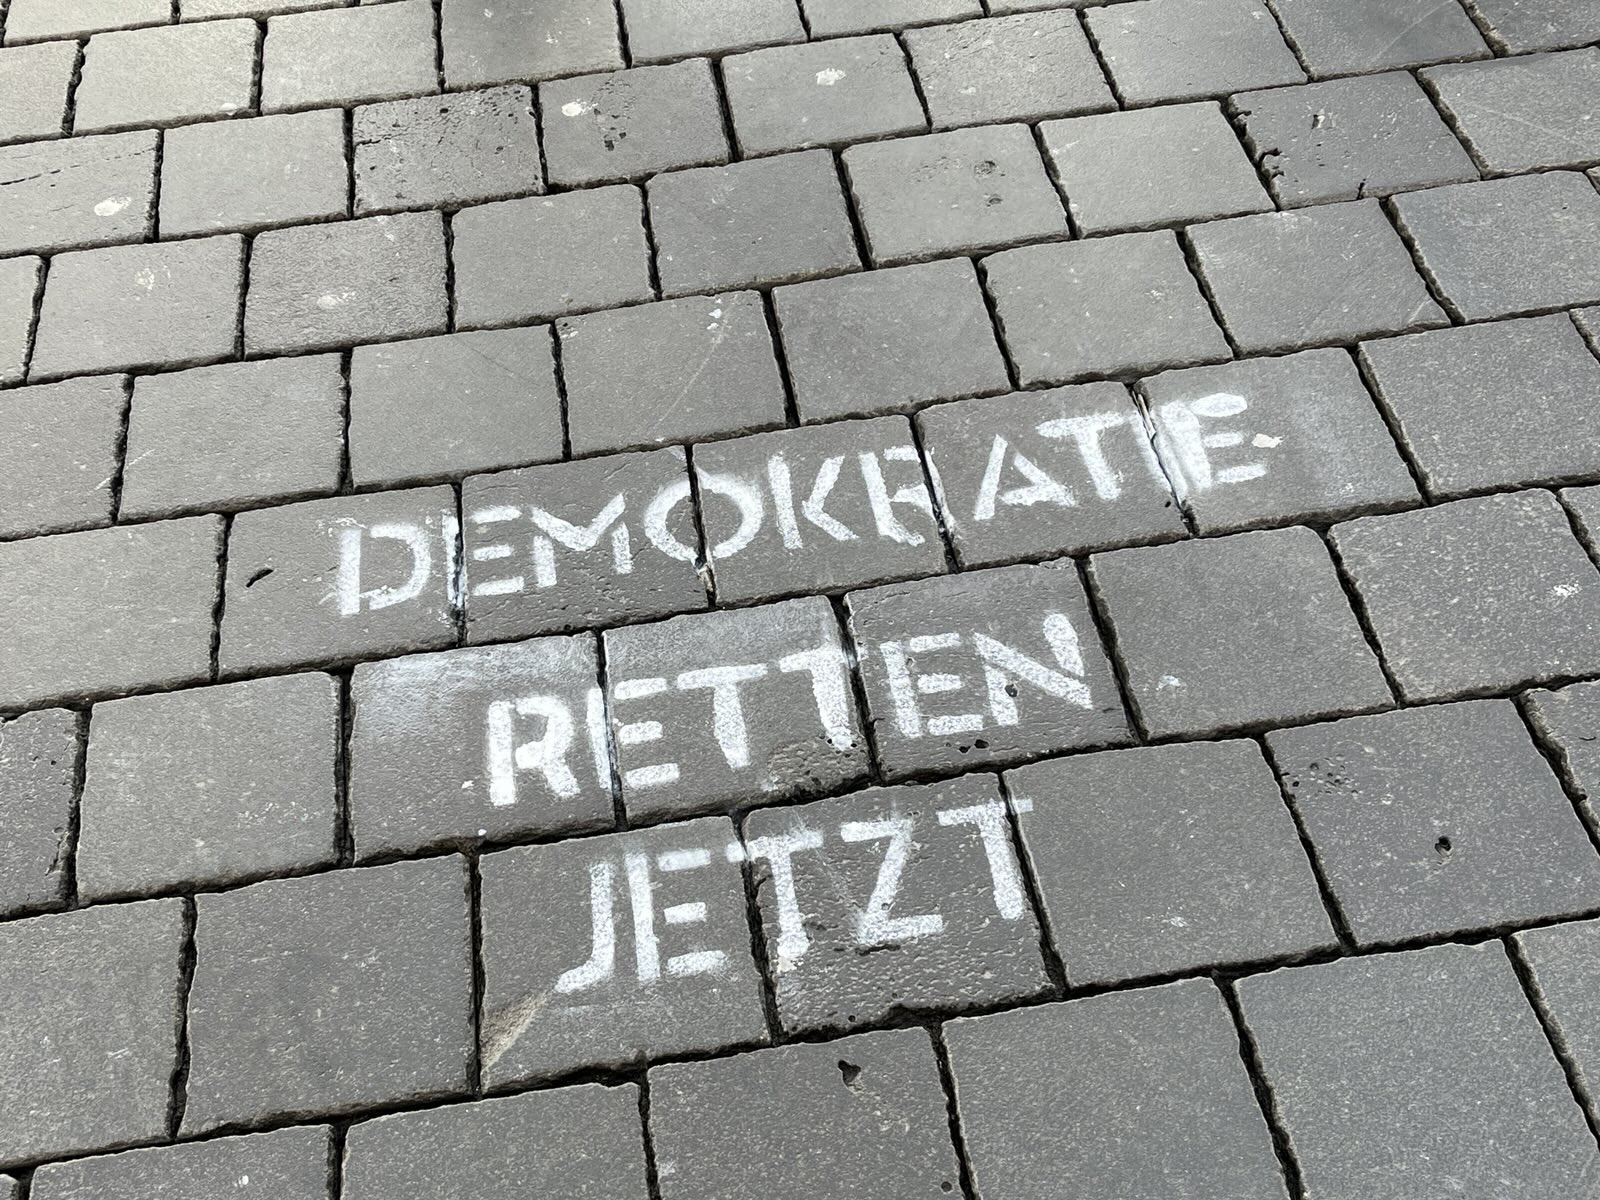 DEMOKRATIE
RETTEN
JETZT